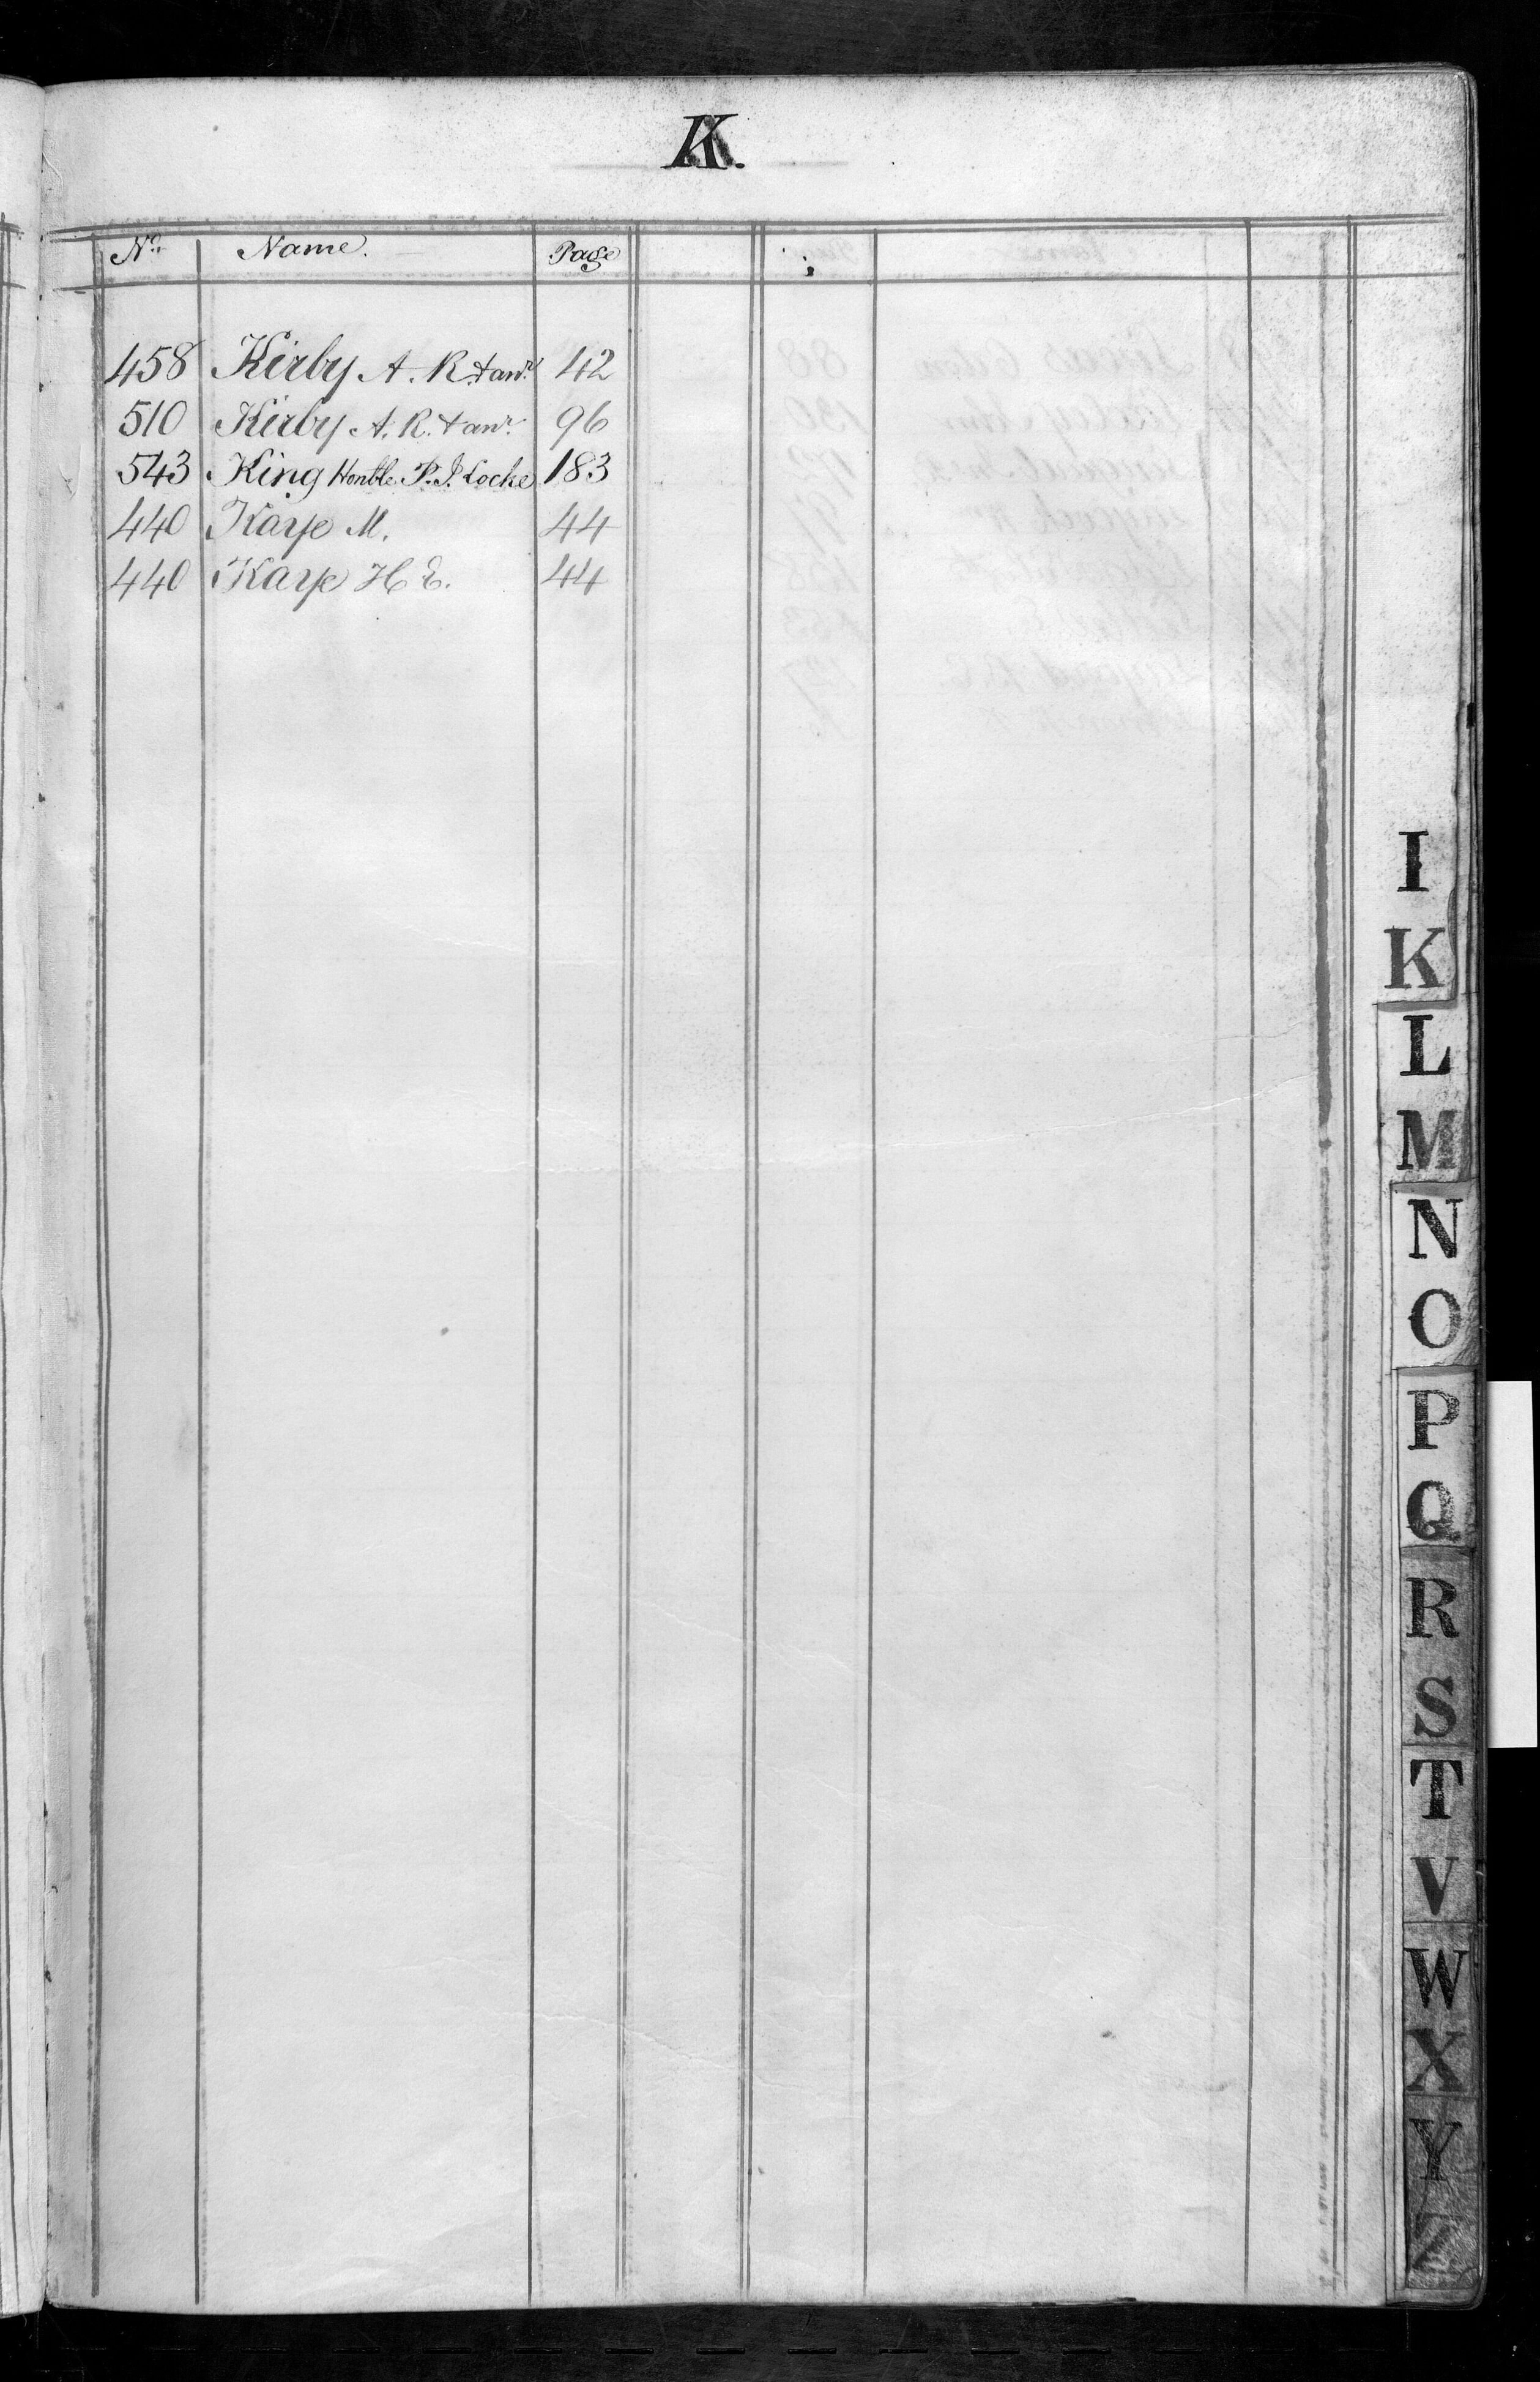 K.
No. Name. Page
458 Kirby A. R. & anr. 42
510 Kirby A. R. & anr. 96
543 King Honble. P. J. Locke 183
440 Kaye M. 44
440 Kaye H E. 44
I
K
L
M
N
O
P
Q
R
S
T
V
W
X
Y
Z